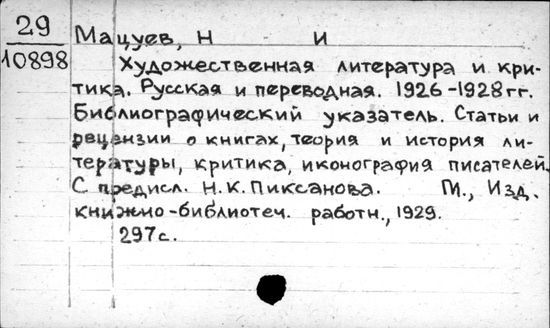 29
10898
Мацуев, Н И
Художественная литература и кри-
тика. Русская и переводная. 1926-1928 гг.
Библиографический указатель. Статьи и
рецензии о книгах, теория и история ли-
тературы, критика, иконография писателей.
С предисл. Н.К.Пиксанова. М., Изд.
книжно-библиотеч. работн., 1929.
297с.